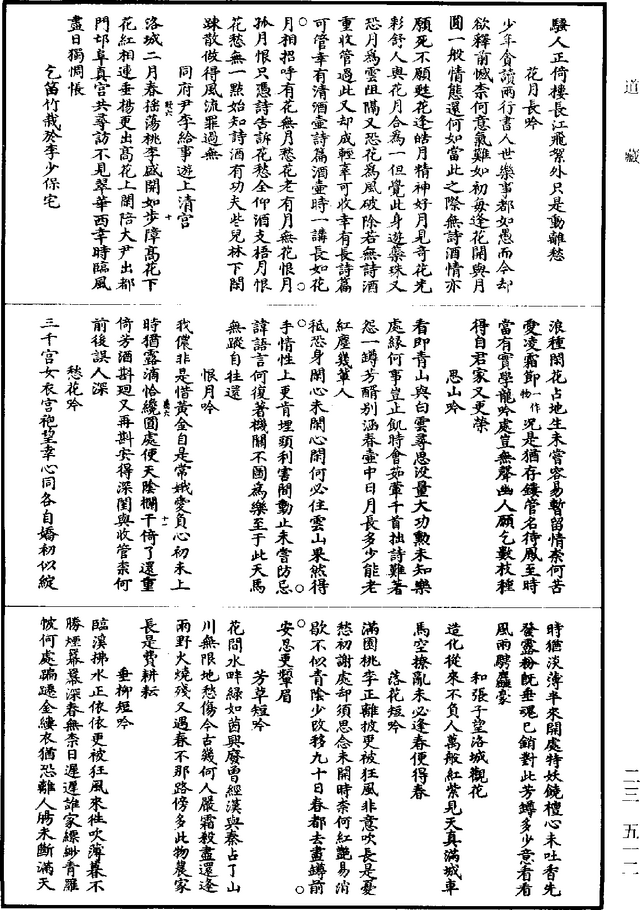 騷人正倚樓長江飛絮外只是動離愁
花月長吟
少年貪讀兩行書人世樂事都如愚而今却
欲釋前憾奈何意氣難如初每逢花開與月
圓一般情態還何如當此之際無詩酒情亦
願死不願甦花逢皓月精神好月見奇花光
彩舒人與花月合為一但覺此身遊蘂珠又
恐月為雲阻隔又恐花為風破除若無詩酒
重收管過此又却成輕辜可收幸有長詩篇
可管幸有清酒壺詩篇酒壺時一講長如花
月相招呼有花無月愁花老有月無花恨月
孤月恨只憑詩告訴花愁全仰酒支梧月恨
花愁無一點始知詩酒有功夫些兒林下閑
踈散做得風流罪過無
同府尹李給事遊上清宮
洛城二月春搖蕩桃李盛開如步障高花下
花紅相連垂楊更出高花上閑陪大尹出都
門邙阜真宮共尋訪不見翠華西幸時臨風
盡日獨惆悵
乞笛竹栽於李少保宅
浪種閑花占地生未嘗容易暫留情奈何苦
愛凌霜節一作物況是猶存鏤管名待鳳至時
當有實學龍吟處豈無聲幽人願乞數枝種
得自君家又更榮
思山吟
看即青山與白雲尋思沒量大功勳未知樂
處緣何事豈止飢時會茹葷千首拙詩難著
怨一罇芳醑別涵春壺中日月長多少能老
紅塵幾輩人
秪恐身閑心未閑心閑何必住雲山果然得
手情性上更肯埋頭利害間動止未嘗防忌
諱語言何復著機關不圖為樂至于此天馬
無蹤自往還
恨月吟
我儂非是惜黃金自是常娥愛負心初未上
時猶露滴恰纔圓處便天陰欄干倚了還重
倚芳酒斟迴又再斟安得深閨與收管柰何
前後誤人深
愁花吟
三千宮女衣宮袍望幸心同各自嬌初似綻
時猶淡薄半來開處特妖饒檀心未吐香先
發露粉旣垂魂已銷對此芳罇多少意看看
風雨騁麤豪
和張子望洛城觀花
造化從來不負人萬般紅紫見天真滿城車
馬空撩亂未必逢春便得春
落花短吟
滿園桃李正離披更被狂風非意吹長是憂
愁初謝處却須思念未開時奈何紅艷易消
歇不似青陰少改移九十日春都去盡罇前
安忍更顰眉
芳草短吟
花間水畔綠如茵興廢曾經漢與秦占了山
川無限地愁傷今古幾何人嚴霜殺盡還逢
雨野火燒殘又遇春不那路傍多此物農家
長是費耕耘
垂柳短吟
臨溪拂水正依依更被狂風來往吹薄暮不
勝煙羃羃深春無柰日遲遲誰家縹緲青羅
帔何處蹁躚金縷衣猶恐離人腸未斷滿天
道藏
二三五一二